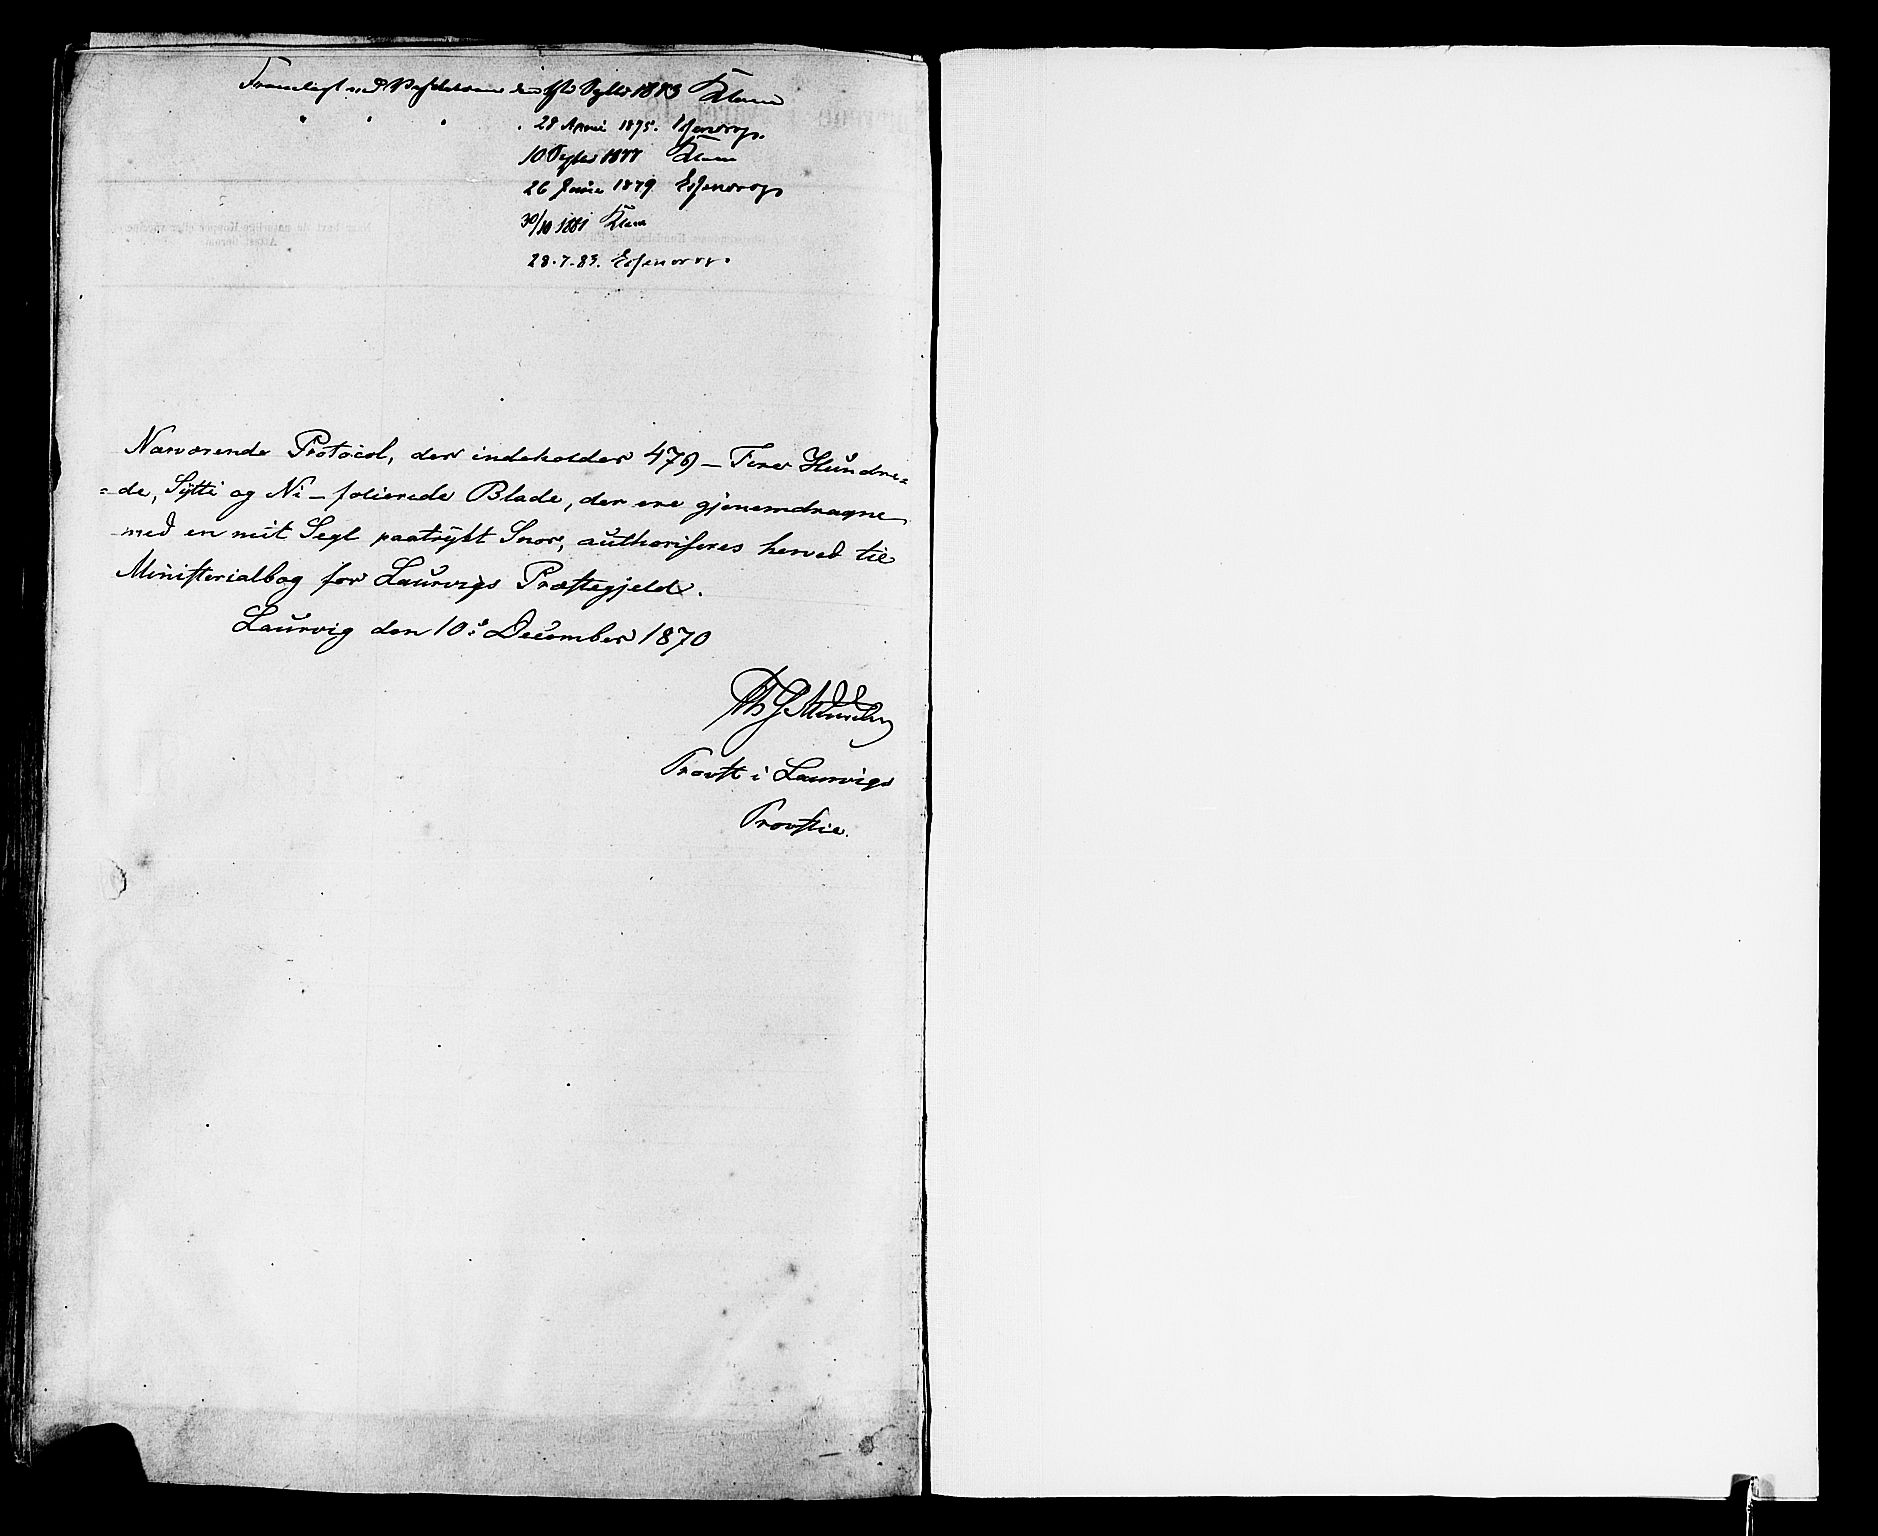 Fremlagt ved Visitatsen den Septbr 1873 Klem
" " " " 28 April 1875. Essendrop.
10 Septbr 1877 Klem
26 Junie 1879 Essendrop
30/10 1881 Klem
28.7.83. Essendrop.
Nærværende Protocol, der indeholder 479 – Fire Hundre=
=de, Sytti og Ni – folierede Blade, der ere gjenemdragne
med en mit Segl paatrykt Snor, authoriseres herved til
Ministerialbog for Laurvigs Præstegjeld.
Laurvig den 10de December 1870
Provst i Laurvigs
Provstie.